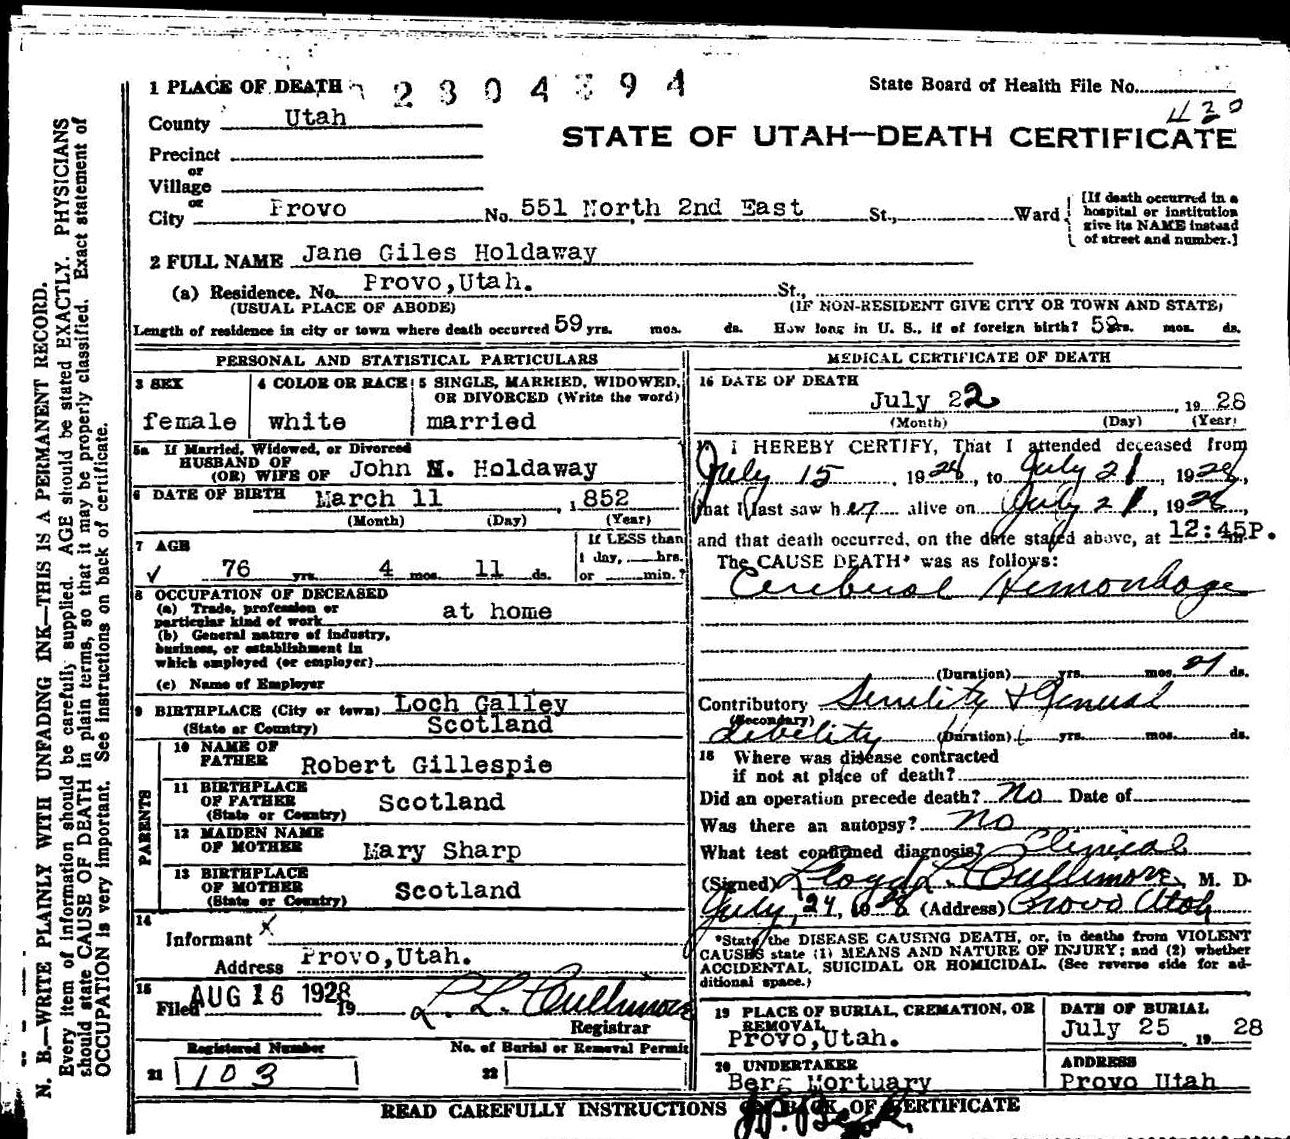 1 PLACE OF DEATH 2304394 State Board of Health File No.
420
County Utah
STATE OF UTAH—DEATH CERTIFICATE
Precinct
or
Village
or
City Provo No. 551 North 2nd East St., Ward
[If death occurred in a hospital or institution give its NAME instead of street and number.]
2 FULL NAME Jane Giles Holdaway
(a) Residence. No. Provo,Utah. St.,
(USUAL PLACE OF ABODE) (IF NON-RESIDENT GIVE CITY OR TOWN AND STATE)
Length of residence in city or town where death occurred 59 yrs. mos. ds. How long in U. S., if of foreign birth? 59 yrs. mos. ds.
PERSONAL AND STATISTICAL PARTICULARS
3 SEX 4 COLOR OR RACE 5 SINGLE, MARRIED, WIDOWED, OR DIVORCED (Write the word)
female white married
5a If Married, Widowed, or Divorced
HUSBAND OF
(OR) WIFE OF John M. Holdaway
6 DATE OF BIRTH March 11 , 1852
(Month) (Day) (Year)
7 AGE If LESS than
1 day, hrs.
✓ 76 yrs. 4 mos. 11 ds. or min.?
8 OCCUPATION OF DECEASED
(a) Trade, profession or
particular kind of work at home
(b) General nature of industry,
business, or establishment in
which employed (or employer)
(c) Name of Employer
9 BIRTHPLACE (City or town) Loch Galley
(State or Country) Scotland
PARENTS
10 NAME OF
FATHER Robert Gillespie
11 BIRTHPLACE
OF FATHER Scotland
(State or Country)
12 MAIDEN NAME
OF MOTHER Mary Sharp
13 BIRTHPLACE
OF MOTHER Scotland
(State or Country)
14
Informant X
Address Provo,Utah.
15
Filed AUG 16 1928 19 L. L. Cullimore
Registrar
Registered Number No. of Burial or Removal Permit
21 103 22
MEDICAL CERTIFICATE OF DEATH
16 DATE OF DEATH
July 22 , 19 28
(Month) (Day) (Year)
17 I HEREBY CERTIFY, That I attended deceased from
July 15 , 1928, to July 21, 1928,
that I last saw her alive on July 21, 1928,
and that death occurred, on the date stated above, at 12:45P.m.
The CAUSE DEATH* was as follows:
Cerebral Hemorrhage
(Duration) yrs. mos. ds.
Contributory Senility & General
(Secondary)
debility (Duration) yrs. mos. ds.
18 Where was disease contracted
if not at place of death?
Did an operation precede death? No Date of
Was there an autopsy? No
What test confirmed diagnosis? Clinical
(Signed) Lloyd L. Cullimore, M. D.
July, 24, 1928 (Address) Provo Utah
*State the DISEASE CAUSING DEATH, or, in deaths from VIOLENT
CAUSES state (1) MEANS AND NATURE OF INJURY; and (2) whether
ACCIDENTAL, SUICIDAL OR HOMICIDAL. (See reverse side for ad-
ditional space.)
19 PLACE OF BURIAL, CREMATION, OR REMOVAL DATE OF BURIAL
Provo,Utah. July 25 , 19 28
20 UNDERTAKER ADDRESS
Berg Mortuary Provo Utah
READ CAREFULLY INSTRUCTIONS ON BACK OF CERTIFICATE
N. B.—WRITE PLAINLY WITH UNFADING INK—THIS IS A PERMANENT RECORD.
Every item of information should be carefully supplied. AGE should be stated EXACTLY. PHYSICIANS
should state CAUSE OF DEATH in plain terms, so that it may be properly classified. Exact statement of
OCCUPATION is very important. See instructions on back of certificate.